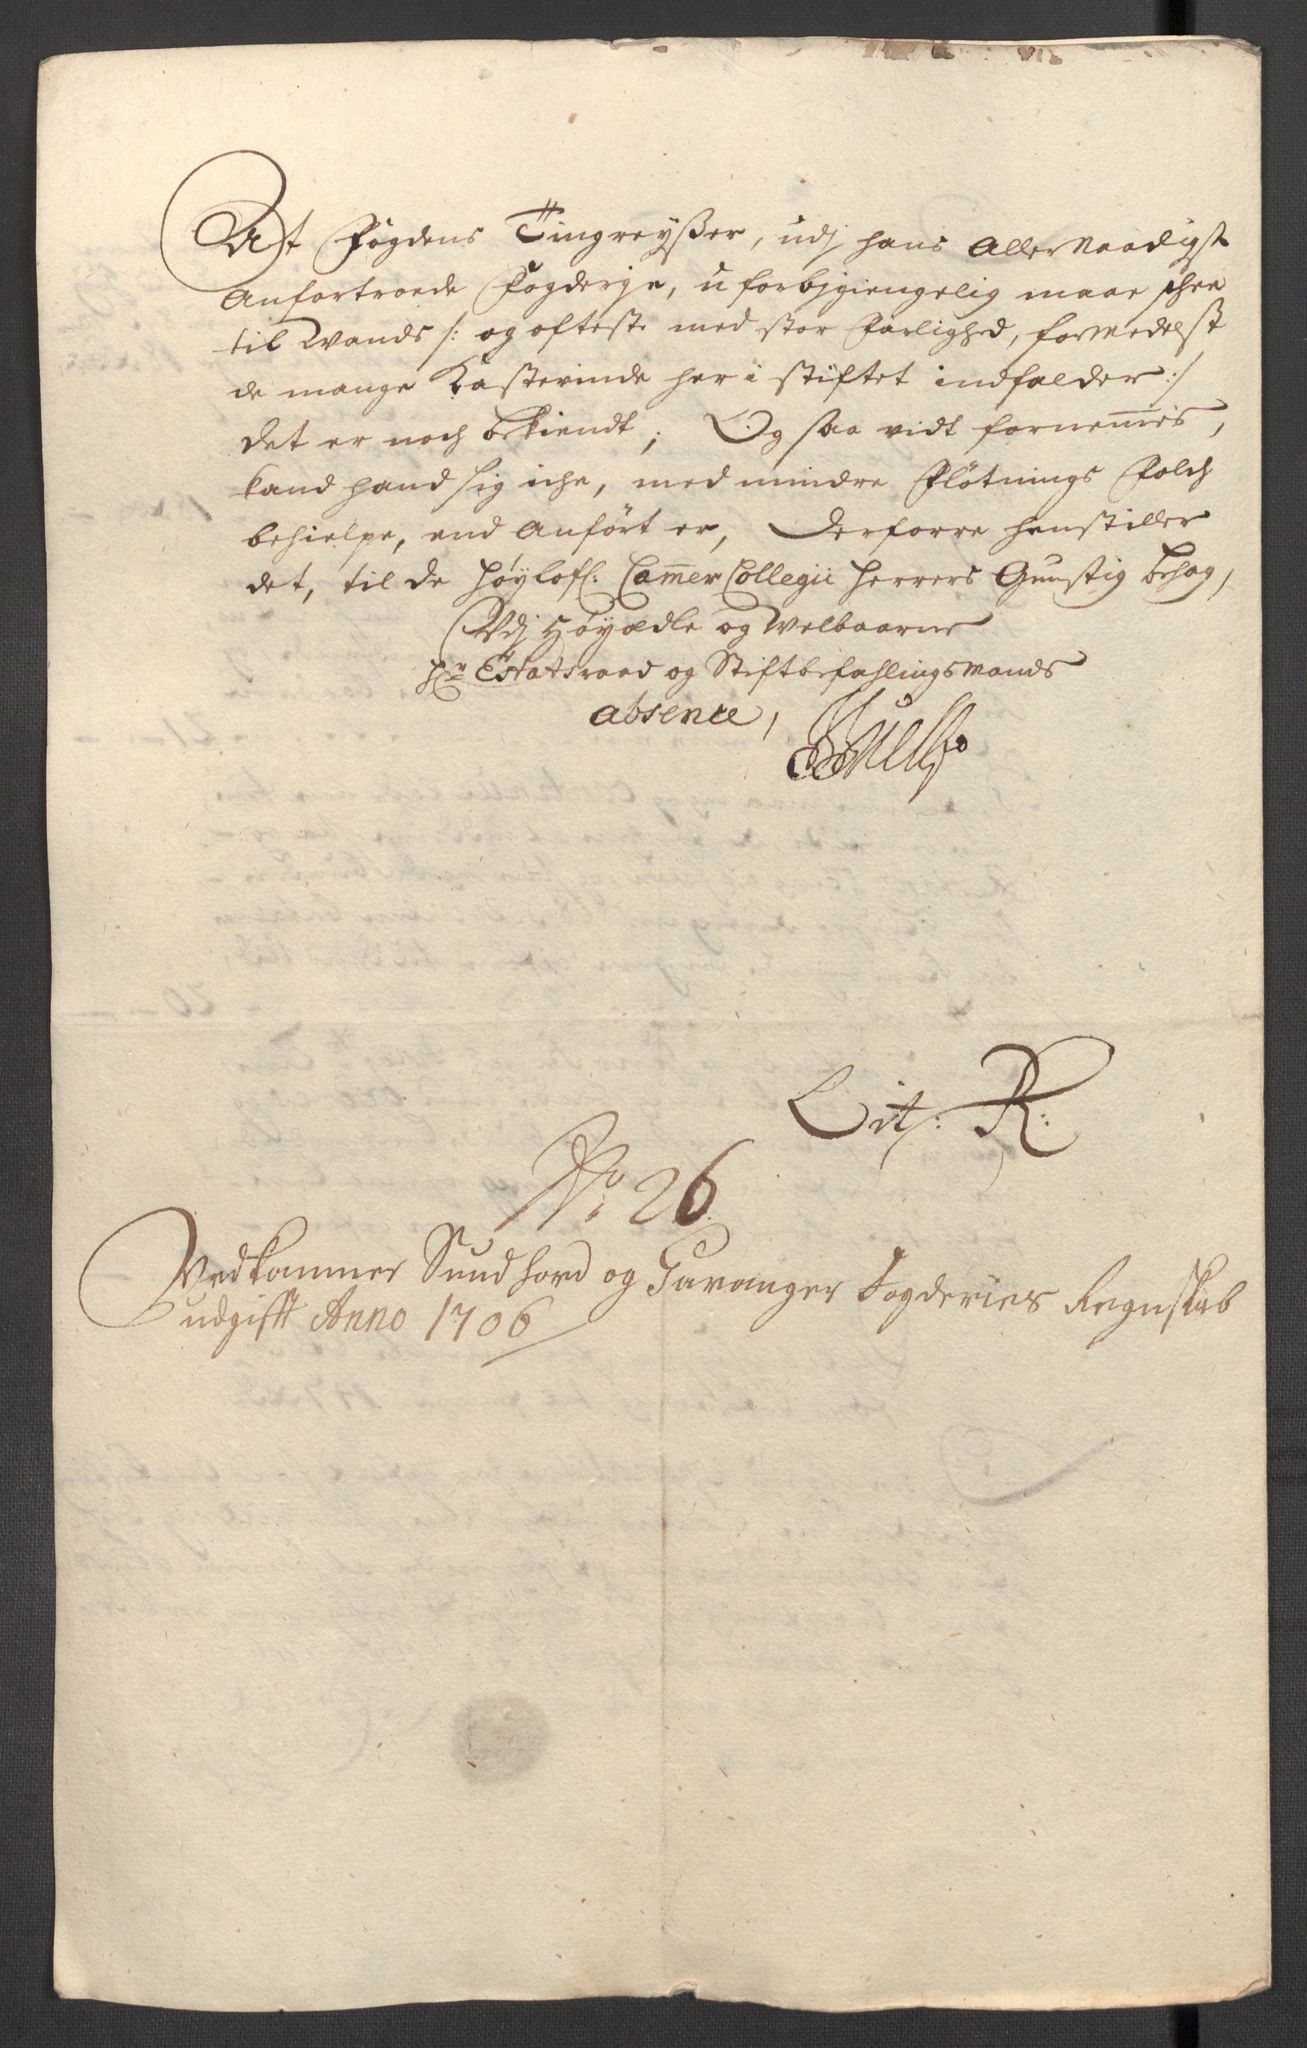 At Fogdens Tingreyßer, udj hans Aller Naadigst
Anfortroede Fogderje, uforbjgiengelig maae schee
til Wands /: og ofteste med stor Farlighed, formedelst
de mange Kastevinde her i stiftet indfalder :/
det er noch bekiendt; Og saa vidt fornemes,
kand hand sig iche, med mindre Fløtnings Folch
behielpe, end Anført er, Derforre henstiller
det, til de høylofl: Camer Collegii Herrers Gunstig behag,
Udj Høyædle og Welbaarne
Hr Etatsraad og Stiftbefahlingsmands
absence,
Lit: R:
No 26
Vedkommer Sundhord og Favanger Fogderies Regnskab
udgifft Anno 1706